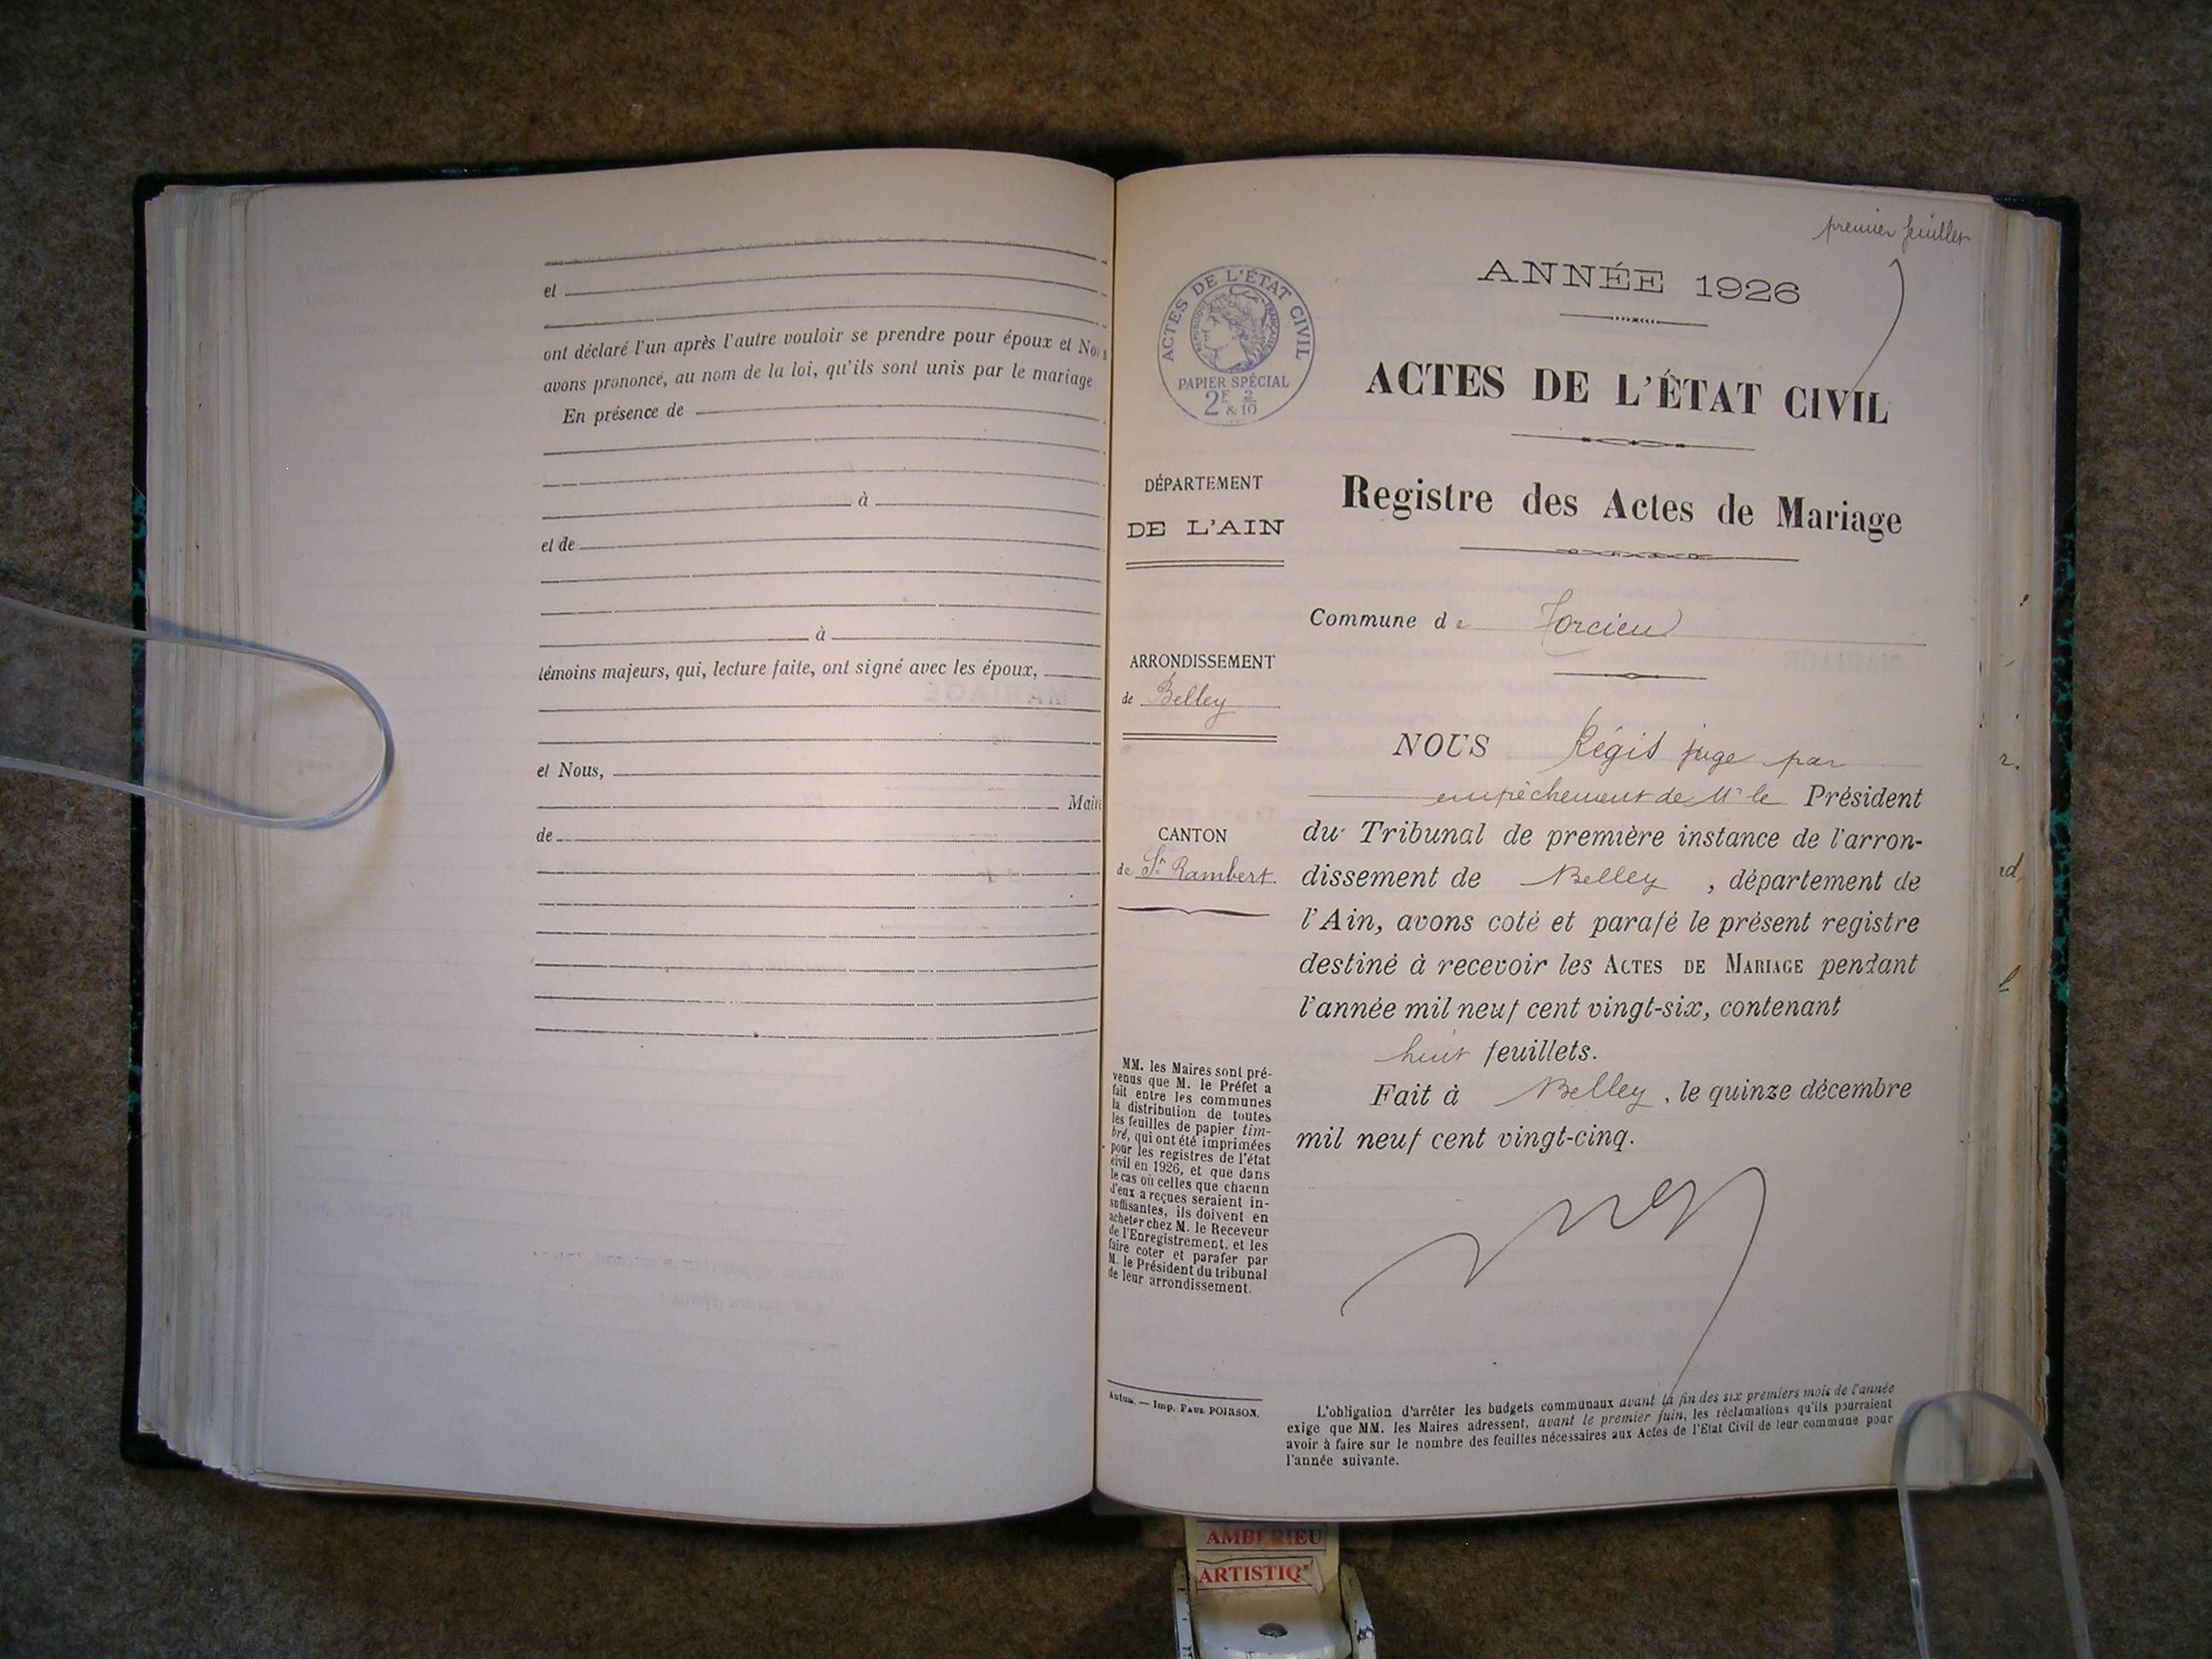 et
ont déclaré l'un après l'autre vouloir se prendre pour époux et Nous
avons prononcé, au nom de la loi, qu'ils sont unis par le mariage
En présence de
à
et de
à
témoins majeurs, qui, lecture faite, ont signé avec les époux,
et Nous,
Maire
de
premier feuillet
ANNÉE 1926
ACTES DE L'ÉTAT CIVIL
RÉPUBLIQUE FRANÇAISE
PAPIER SPÉCIAL
2F 2/10
& 
ACTES DE L'ÉTAT CIVIL
Registre des Actes de Mariage
DÉPARTEMENT
DE L'AIN
Commune de Torcieu
ARRONDISSEMENT
de Belley
CANTON
de St Rambert
NOUS Régis juge par
empêchement de Mr le Président
du Tribunal de première instance de l'arron-
dissement de Belley, département de
l'Ain, avons coté et parafé le présent registre
destiné à recevoir les ACTES DE MARIAGE pendant
l'année mil neuf cent vingt-six, contenant
huit feuillets.
Fait à Belley, le quinze décembre
mil neuf cent vingt-cinq.
MM. les Maires sont pré-
venus que M. le Préfet a
fait entre les communes
la distribution de toutes
les feuilles de papier tim-
bré, qui ont été imprimées
pour les registres de l'état
civil en 1926, et que dans
le cas où celles que chacun
d'eux a reçues seraient in-
suffisantes, ils doivent en
acheter chez M. le Receveur
de l'Enregistrement, et les
faire coter et parafer par
M. le Président du tribunal
de leur arrondissement.
Autun. — Imp. PAUL POIRSON.
L'obligation d'arrêter les budgets communaux avant la fin des six premiers mois de l'année
exige que MM. les Maires adressent, avant le premier juin, les réclamations qu'ils pourraient
avoir à faire sur le nombre des feuilles nécessaires aux Actes de l'Etat Civil de leur commune pour
l'année suivante.
AMBERIEU
ARTISTIQ